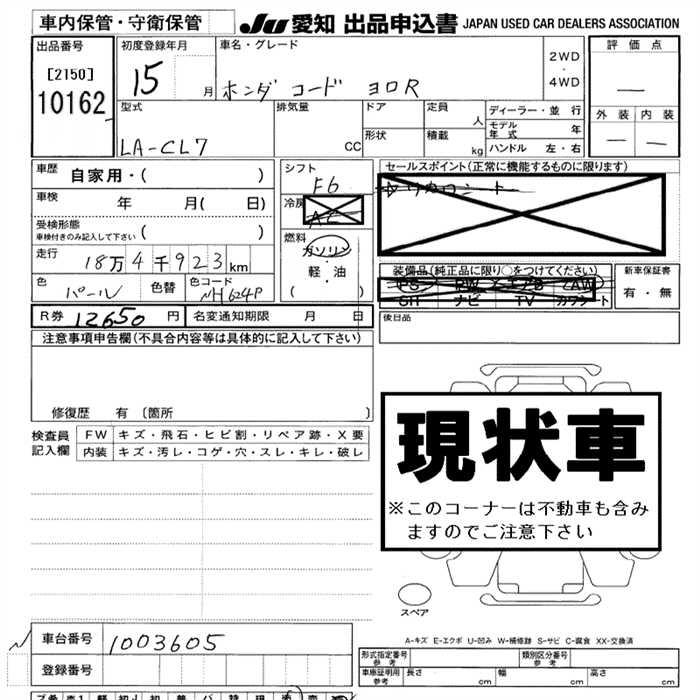 車内保管・守衛保管 JU 愛知 出品申込書 JAPAN USED CAR DEALERS ASSOCIATION
出品番号 初度登録年月 車名・グレード 評価点
[2150] 15 月 ホンダ コード ヨロR 2WD・4WD —
10162
型式 排気量 ドア 定員 人 ディーラー・並行 外装 内装
モデル年式 年
LA-CL7 CC 形状 積載 kg ハンドル 左・右 — —
車歴 自家用・( ) シフト F6 セールスポイント(正常に機能するものに限ります)
車検 年 月( 日) 冷房 AC
受検形態 ( )
車検付きのみ記入して下さい
燃料 ガソリン・軽・油 ( )
走行 18万4千923km
装備品(純正品に限り○をつけてください) 新車保証書
色 パール 色替 色コード NH624P PS PW エアB AW 有・無
SH ナビ TV カワシート
R券 12650円 名変通知期限 月 日 後日品
注意事項申告欄(不具合内容等は具体的に記入して下さい)
修復歴 有 [箇所 ]
検査員記入欄 FW キズ・飛石・ヒビ割・リペア跡・X要
内装 キズ・汚レ・コゲ・穴・スレ・キレ・破レ
現状車
※このコーナーは不動車も含み
ますのでご注意下さい
スペア
A-キズ E-エクボ U-凹み W-補修跡 S-サビ C-腐食 XX-交換済
車台番号 1003605
登録番号
形式指定番号 参考 類別区分番号 参考
車庫証明用 参考 長さ cm 幅 cm 高さ cm